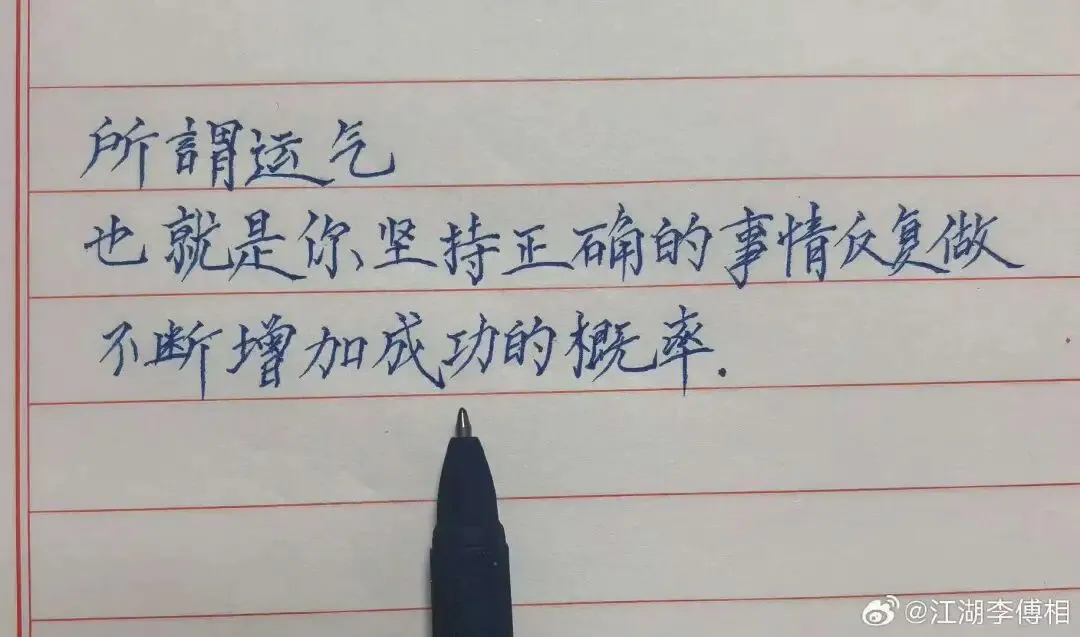 所謂运气
也就是你坚持正确的事情反复做
不断增加成功的概率.
@江湖李傅相